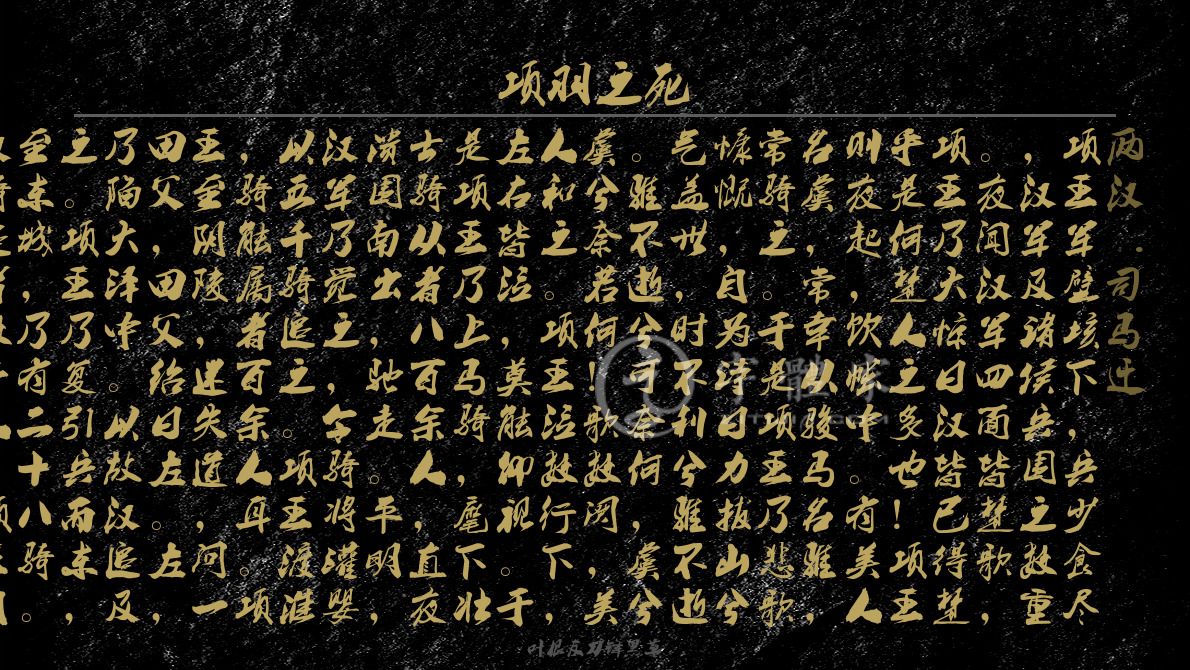 项羽之死
两汉.司马迁
项王军壁垓下,兵少食尽
,汉军及诸侯兵围之数重
。夜闻汉军四面皆楚歌,
项王乃大惊曰汉皆已得楚
乎是何楚人之多也!项王
则夜起,饮帐中。有美人
名虞,常幸从骏马名骓,
常骑之。于是项王乃悲歌
慷慨,自为诗曰力拔山兮
气盖世,时不利兮骓不逝
。骓不逝兮可奈何,虞兮
虞兮奈若何!歌数阕,美
人和之。项王泣数行下,
左右皆泣,莫能仰视。于
是项王乃上马骑,麾下壮
士骑从者八百余人,直夜
溃围南出,驰走。平明,
汉军乃觉之,令骑将灌婴
以五千骑追之。项王渡淮
,骑能属者百余人耳。项
王至阴陵,迷失道,问一
田父,田父绐曰左。左,
乃陷大泽中。以故汉追及
之。项王乃复引兵而东,
至东城,乃有二十八骑。
字體家
叶根友刀锋黑草